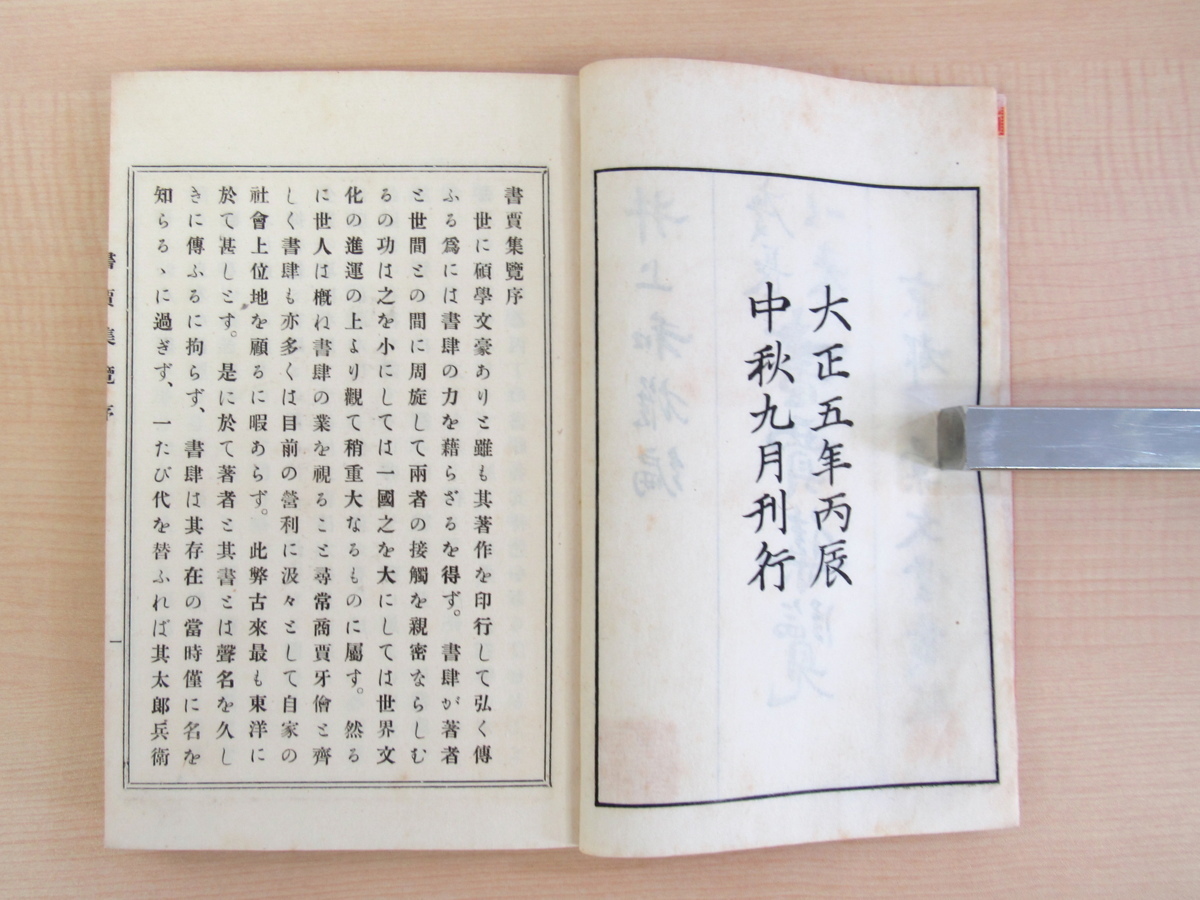 大正五年丙辰
中秋九月刊行
書賈集覽序
世に碩學文豪ありと雖も其著作を印行して弘く傳
ふる爲には書肆の力を藉らざるを得ず。書肆が著者
と世間との間に周旋して兩者の接觸を親密ならしむ
るの功は之を小にしては一國之を大にしては世界文
化の進運の上より觀て稍重大なるものに屬す。然る
に世人は概ね書肆の業を視ること尋常商賈牙儈と齊
しく書肆も亦多くは目前の營利に汲々として自家の
社會上位地を顧るに暇あらず。此弊古來最も東洋に
於て甚しとす。是に於て著者と其書とは聲名を久し
きに傳ふるに拘らず、書肆は其存在の當時僅に名を
知らるゝに過ぎず、一たび代を替ふれば其太郞兵衞
書賈集覽序
一